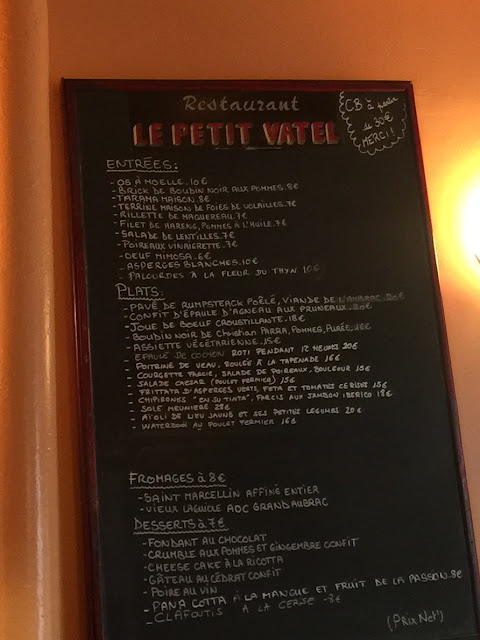 Restaurant
LE PETIT VATEL
CB à partir
de 30€
MERCI!!
ENTRÉES:
- OS À MOELLE. 10€
- BRICK DE BOUDIN NOIR AUX POMMES. 8€
- TARAMA MAISON. 8€
- TERRINE MAISON DE FOIES DE VOLAILLES. 7€
- RILLETTE DE MAQUEREAU. 7€
- FILET DE HARENG, POMMES À L'HUILE. 7€
- SALADE DE LENTILLES. 7€
- POIREAUX VINAIGRETTE. 7€
- OEUF MIMOSA. 6€
- ASPERGES BLANCHES. 10€
- PALOURDES À LA FLEUR DU THYN 10€
PLATS:
- PAVÉ DE RUMPSTEACK POÊLÉ, VIANDE DE L'AUBRAC. 20€
- CONFIT D'ÉPAULE D'AGNEAU AUX PRUNEAUX. 20€
- JOUE DE BOEUF CROUSTILLANTE. 18€
- BOUDIN NOIR DE Christian PARRA, POMMES, PURÉE. 16€
- ASSIETTE VÉGÉTARIENNE. 15€
- EPAULE DE COCHON ROTI PENDANT 12 HEURES 20€
- POITRINE DE VEAU, ROULÉE A LA TAPENADE 16€
- COURGETTE FARCIE, SALADE DE POIREAUX, BOULGOUR 15€
- SALADE CAESAR (POULET FERMIER) 15€
- FRITTATA D'ASPERGES VERTS, FETA ET TOMATES CERISES 15€
- CHIPIRONES "EN SU TINTA", FARCIS AUX JAMBON IBERICO 18€
- SOLE MEUNIERE 28€
- AÏOLI DE LIEU JAUNE ET SES PETITES LEGUMES 20€
- WATERZOOI AU POULET FERMIER 16€
FROMAGES à 8€
- SAINT MARCELLIN AFFINÉ ENTIER
- VIEUX LAGUIOLE AOC GRAND AUBRAC
DESSERTS à 7€
- FONDANT AU CHOCOLAT
- CRUMBLE AUX POMMES ET GINGEMBRE CONFIT
- CHEESE CAKE À LA RICOTTA
- GÂTEAU AU CÉDRAT CONFIT
- POIRE AU VIN
- PANA COTTA À LA MANGUE ET FRUIT DE LA PASSION. 8€
- CLAFOUTIS A LA CERISE - 8€
(Prix Net!)